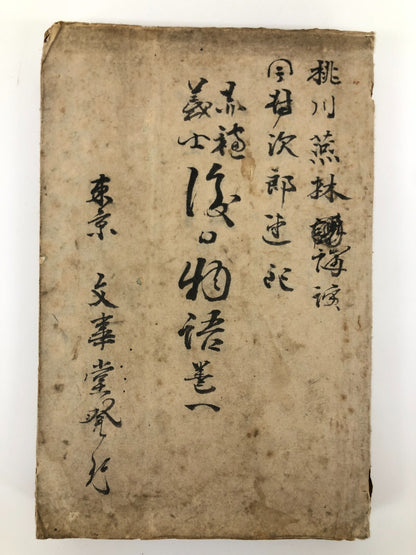 桃川燕林講演
今村次郎速記
赤穂
義士
後日物語
巻一
東京 文華堂発行